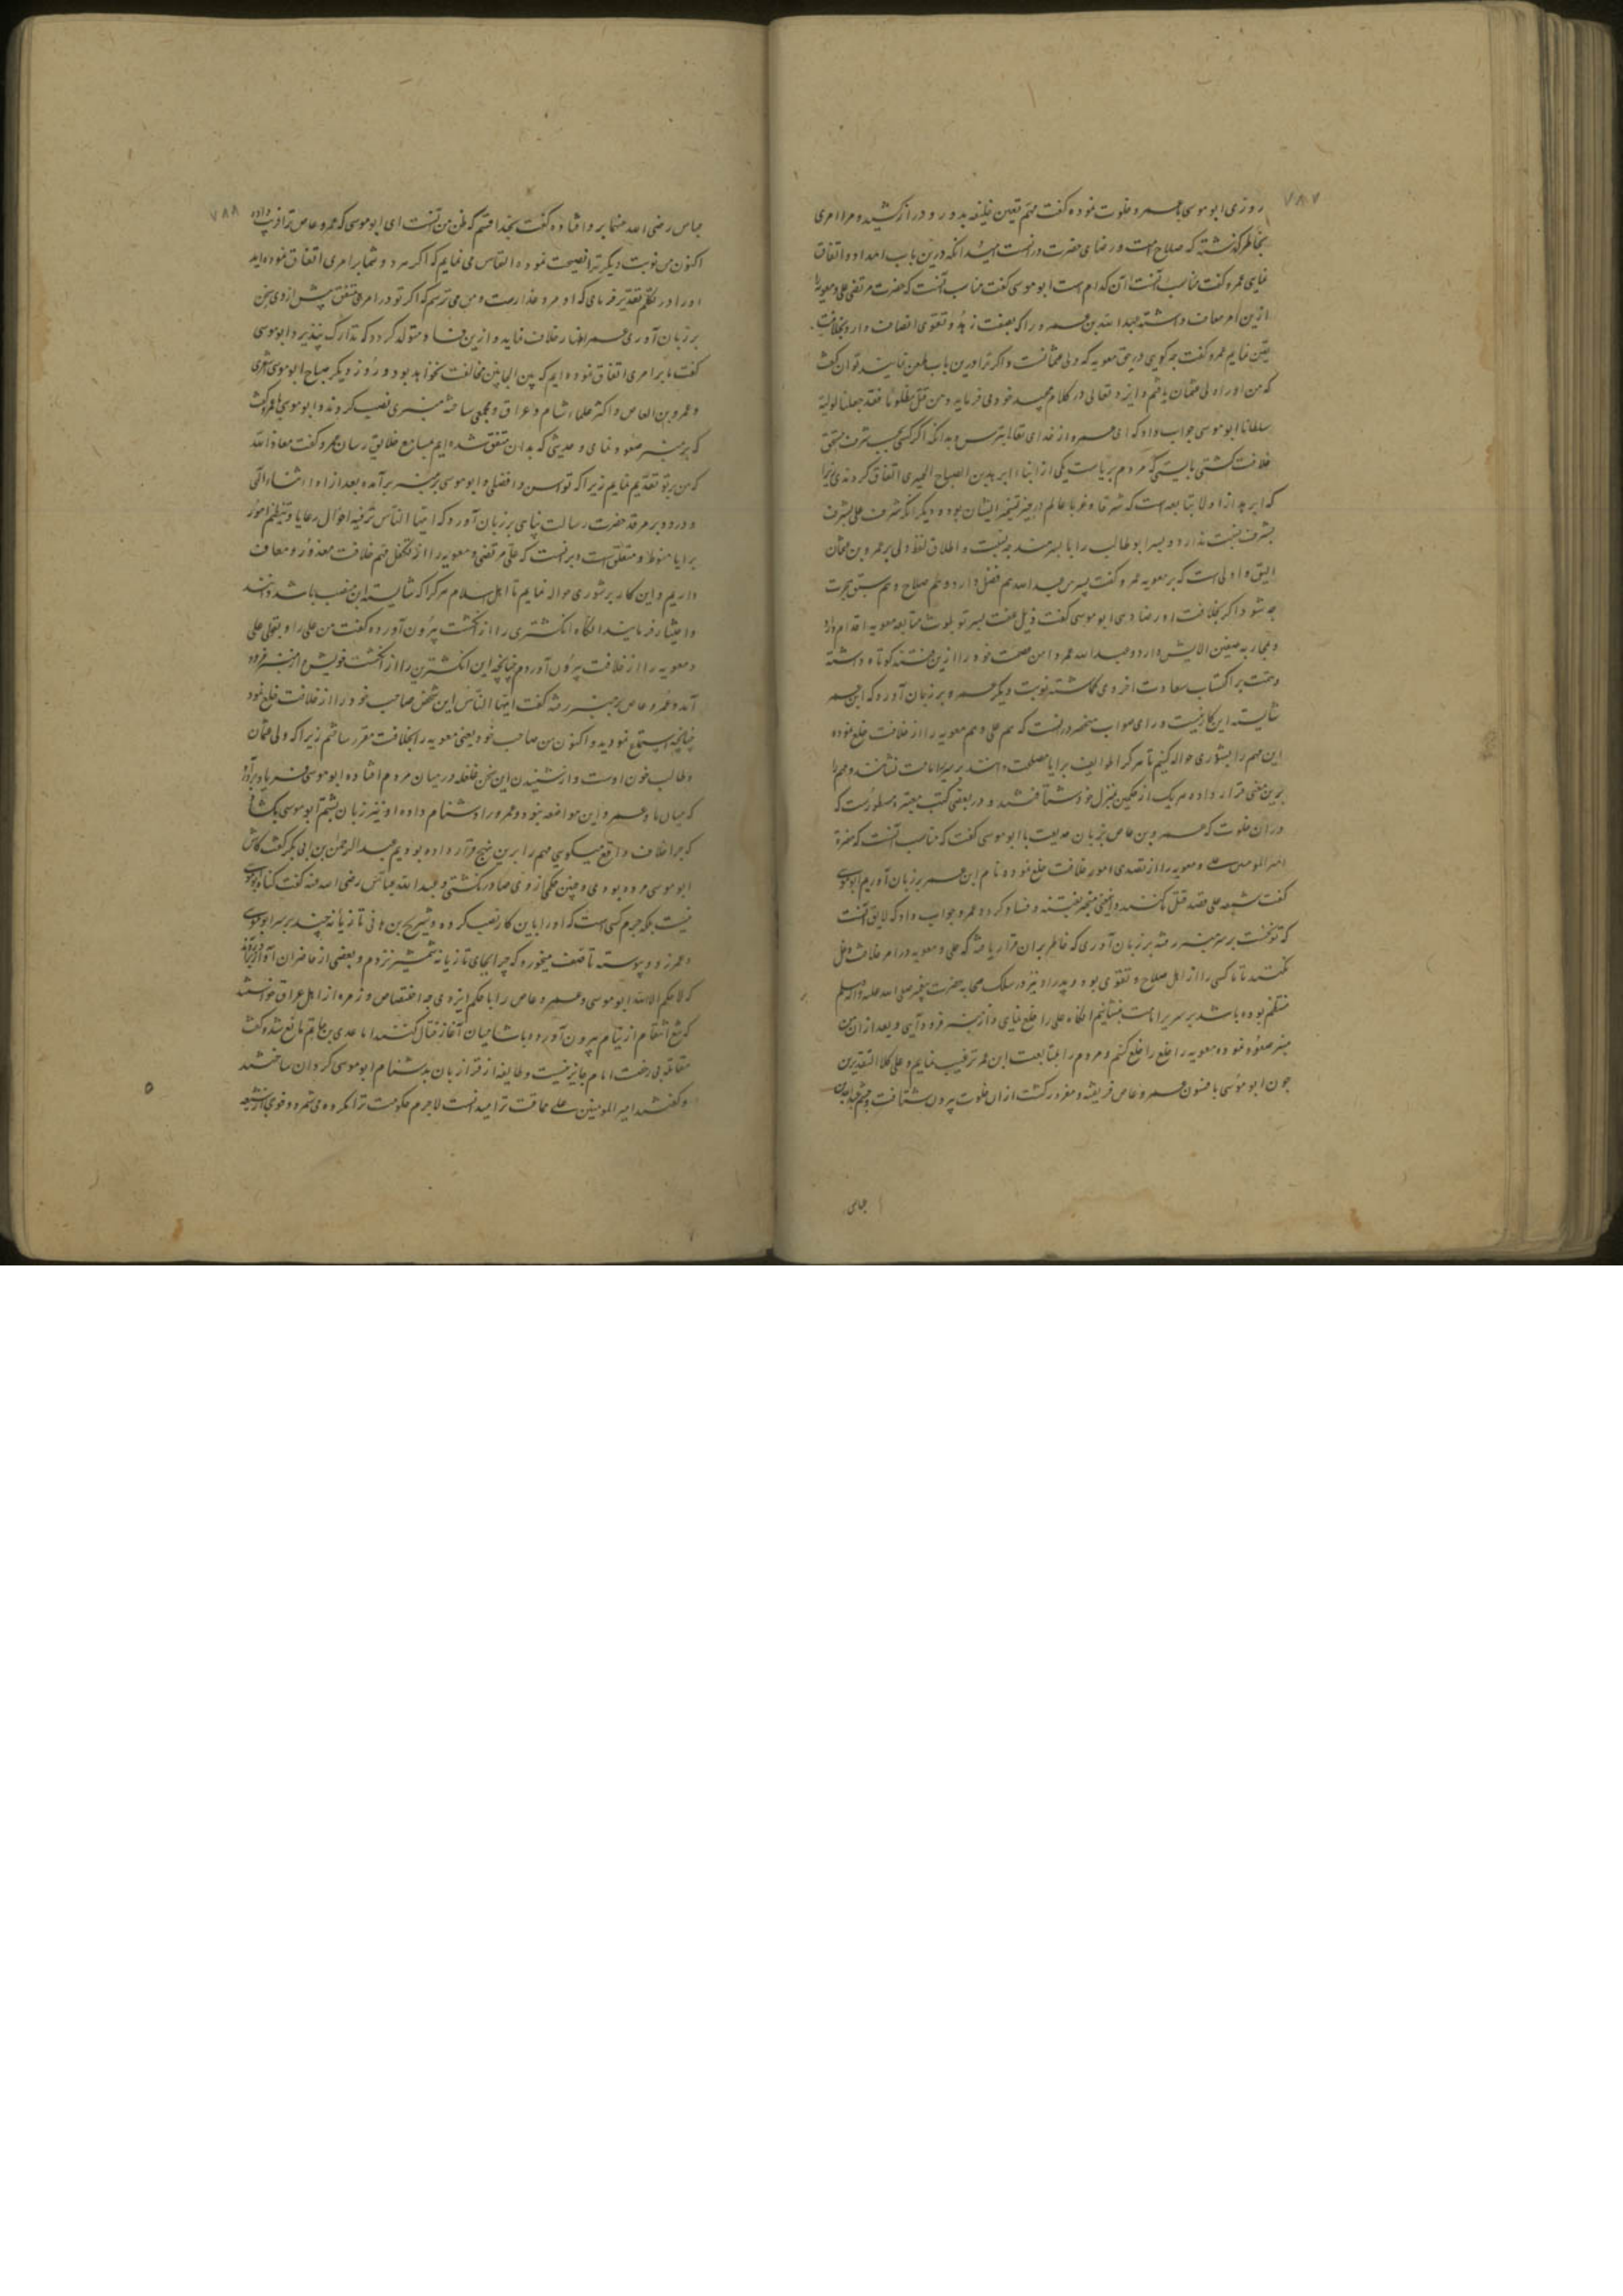 ۷۸۷
روزی ابو موسی با عمرو خلوت نموده گفت مهم تعین خلیفه بدور و دراز کشید و مرا امری
بخاطر گذشته که صلاح امت و رضای حضرت در انست امید آنکه درین باب امداد و اتفاق
نمایی عمرو گفت مناسب آنست آن کدام است ابو موسی گفت مناسب آنست که حضرت مرتضی علی و معویه را
ازین امر معاف داشته عبد الله بن عمر را که بصفت زهد و تقوی اتصاف دارد بخلافت
تعین نمایم عمرو گفت چه گویی در حق معویه که ولی عثمانست و اگر ترا درین باب طعن نمایند توان گفت
که من او را ولی عثمان یافتم و ایزد تعالی در کلام مجید خود می فرماید و من قتل مظلوما فقد جعلنا لولیه
سلطانا ابو موسی جواب داد که ای عمرو از خدای تعالی بترس و بدانکه اگر کسی بحسب شرف مستحق
خلافت گشتی بایستی که مردم بریاست یکی از ابناء ابرهة بن الصباح الحمیری اتفاق کردندی زیرا
که ابرهه از اولاد تبابعه است که شرقا و غربا عالم در حیز تسخیر ایشان بوده و دیگر آنکه شرف علی بشرف
بشرف نسبت ندارد و پسر ابو طالب را با پسر هند چه نسبت و اطلاق لفظ ولی بر عمرو بن عثمان
الیق و اولی است که بر معویه عمرو گفت پسرم عبد الله هم فضل دارد و هم صلاح و هم سبق هجرت
چه شود اگر بخلافت او رضا دهی ابو موسی گفت ذیل عفت پسر تو بلوث متابعه معویه اقدام دارد
و محاربه صفین آلایش دارد و عبد الله عمر دامن صحت خود را ازین فتنه کوتاه داشته
و همت بر اکتساب سعادت اخروی گماشته نوبت دیگر عمرو بر زبان آورد که ابن عمر
شایسته این کار نیست و رای صواب منحصر در انست که هم علی و هم معویه را از خلافت خلع نموده
این مهم را بشوری حواله کنیم تا هر کرا طوایف برایا مصلحت دانند بر سریر امامت نشانند و مهم را
برین معنی قرار داده هر یک از حکمین بمنزل خود شتافتند و در بعضی کتب معتبره مسطورست که
در آن خلوت که عمرو بن عاص بزبان خدیعت با ابو موسی گفت که مناسب آنست که حضرة
امیر المومنین علی و معویه را از تصدی امور خلافت خلع نموده نام ابن عمر بر زبان آوریم ابو موسی
گفت شیعه علی قصد قتل ما کنند و این معنی منجر بفتنه و فساد گردد عمرو جواب داد که لایق آنست
که تو نخست بر سر منبر رفته بر زبان آوری که خاطر بران قرار یافته که علی و معویه در امر خلافت دخل
نکنند تا ما کسی را از اهل صلاح و تقوی بود و پدر او نیز در سلک صحابه حضرت پیغمبر صلی الله علیه و آله و سلم
منتظم بوده باشد بر سریر امامت بنشانیم آنگاه علی را خلع نمایی و از منبر فرود آیی و بعد از آن من
بمنبر صعود نموده معویه را خلع را خلع کنم و مردم را بمتابعت ابن عمر ترغیب نمایم و علی کلا التقدیرین
چون ابو موسی بافسون عمرو عاص فریفته و مغرور گشت از آن خلوت بیرون شتافت و چشم عبد الله بن
عباس
۷۸۸
عباس رضی الله عنهما بر وی افتاده گفت بخدا قسم که ظن من آنست ای ابو موسی که عمرو عاص ترا فریب داده
اکنون من نوبت دیگر ترا نصیحت نموده التماس می نمایم که اگر هر دو شما بر امری اتفاق نموده اید
او را در تکلم تقدیم فرمای که او مرد غدارست و من می ترسم که اگر تو در امر متفق پیش از وی سخن
بر زبان آوری عمرو اظهار خلاف نماید و ازین فسادی متولد گردد که تدارک نپذیرد ابو موسی
گفت ما بر امری اتفاق نموده ایم که بین الجانبین مخالفت نخواهد بود و روز دیگر صباح ابو موسی اشعری
و عمرو بن العاص و اکثر علماء شام و عراق و مجمعی ساخته منبری نصب کردند و ابو موسی با عمرو گفت
که بر منبر صعود نمای و حدیثی که بدان متفق شده ایم بمسامع خلایق رسان عمرو گفت معاذ الله
که من بر تو تقدیم نمایم زیرا که تو اسن و افضلی و ابو موسی بر منبر بر آمده بعد از اداء ثناء الهی
و درود بر مرقد حضرت رسالت پناهی بر زبان آورد که ایها الناس ترفیه احوال رعایا و تنظیم امور
برایا منوط و متعلق است و بر انست که علی مرتضی و معویه را از تکفل مهم خلافت معذور و معاف
داریم و این کار بر شوری حواله نمایم تا اهل اسلام هر کرا که شایسته این منصب باشد دانند
و اختیار فرمایند آنگاه انگشتری را از انگشت بیرون آورده گفت من علی را و بقولی علی
و معویه را از خلافت بیرون آوردم چنانچه این انگشترین را از انگشت خویش از منبر فرود
آمد و عمرو عاص بر منبر رفته گفت ایها الناس این شخص صاحب خود را از خلافت خلع نمود
چنانچه استماع نمودید و اکنون من صاحب خود یعنی معویه را بخلافت مقرر ساختم زیرا که ولی عثمان
و طالب خون اوست و از شنیدن این سخن غلغله در میان مردم افتاده ابو موسی فریاد برآورد
که میان ما و عمرو این مواضعه نبود و عمرو را دشنام داده او نیز زبان بشتم ابو موسی بگشاد
که چرا خلاف واقع میگویی مهم را برین نهج قرار داده بودیم عبد الرحمن بن ابی بکر گفت کاش
ابو موسی مرده بودی و چنین حکمی از وی صادر نگشتی و عبد الله عباس رضی الله عنه گفت گناه ابو موسی
نیست بلکه جرم کسی است که او را باین کار نصب کرده و شریح بن هانی تازیانه چند بر سر ابو موسی
و عمر زد و پیوسته تاسف میخورد که چرا بجای تازیانه شمشیر نزدم و بعضی از حاضران آواز برآوردند
که لا حکم الا لله ابو موسی و عمرو عاص را با حکم ایزدی چه اختصاص و زمره از اهل عراق خواستند
که تیغ انتقام از نیام بیرون آورده با شامیان آغاز قتال کنند اما عدی بن حاتم مانع شد و گفت
مقاتله بی رخصت امام جایز نیست و طایفه از قرا زبان بدشنام ابو موسی گردان ساختند
و گفتند امیر المومنین علی حماقت ترا میدانست لاجرم حکومت ترا مکروه می شمرد و فوجی از شیعه